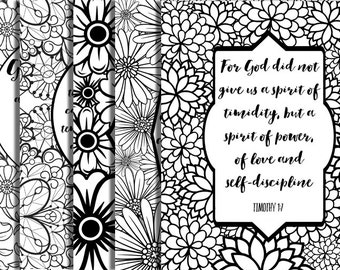 For God did not
give us a spirit of
timidity, but a
spirit of power,
of love and
self-discipline
TIMOTHY 1:7